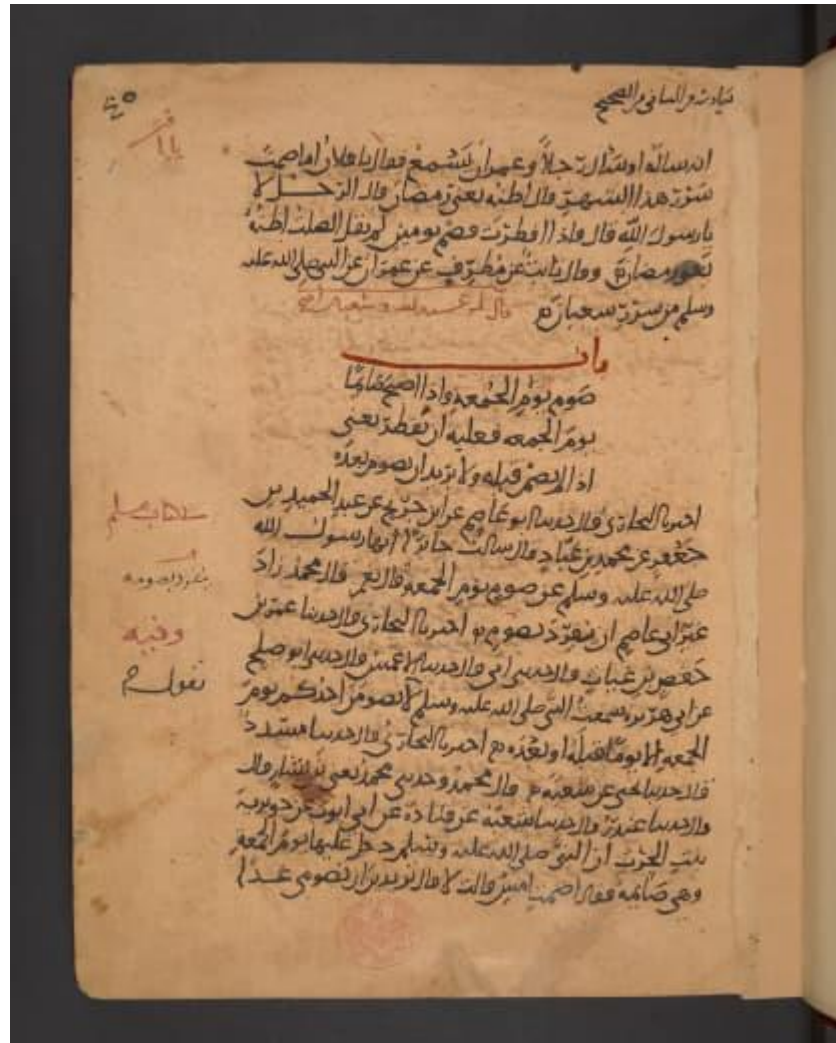 انه ساله او سال رجلا وعمران يسمع فقال يا فلان اما صمت
سرر هذا الشهر قال اظنه يعنى رمضان قال الرجل لا
يا رسول الله قال فاذا افطرت فصم يومين لم يقل الصلت اظنه
يعنى رمضان وقال ثابت عن مطرف عن عمران عن النبى صلى الله عليه
وسلم من سرر شعبان
باب
صوم يوم الجمعه واذا اصبح صايما
يوم الجمعه فعليه ان يفطر يعنى
اذا لم يصم قبله ولا يريد ان يصوم بعده
اخبرنا البخارى قال حدثنا ابو عاصم عن ابن جريج عن عبد الحميد بن
جعفر عن محمد بن عباد قال سالت جابرا انهى رسول الله
صلى الله عليه وسلم عن صوم يوم الجمعه قال نعم قال محمد زاد
غير ابى عاصم ان ينفرد بصوم اخبرنا البخارى قال حدثنا عمر بن
حفص بن غياث قال حدثنى ابى قال حدثنا الاعمش قال حدثنى ابو صلح
عن ابى هريره سمعت النبى صلى الله عليه وسلم لا يصومن احدكم يوم
الجمعه الا يوما قبله او بعده اخبرنا البخارى قال حدثنا مسدد
قال حدثنا يحيى عن شعبه قال محمد وحدثنى محمد يعنى بن بشار قال
قال حدثنا غندر قال حدثنا شعبه عن قتادة عن ابى ايوب عن جويرية
بنت الحرث ان النبى صلى الله عليه وسلم دخل عليها يوم الجمعة
وهى صايمه فقال اصمت امس قالت لا قال تريدين ان تصومى غدا
ينفرد بصومه
وفيه
يقول